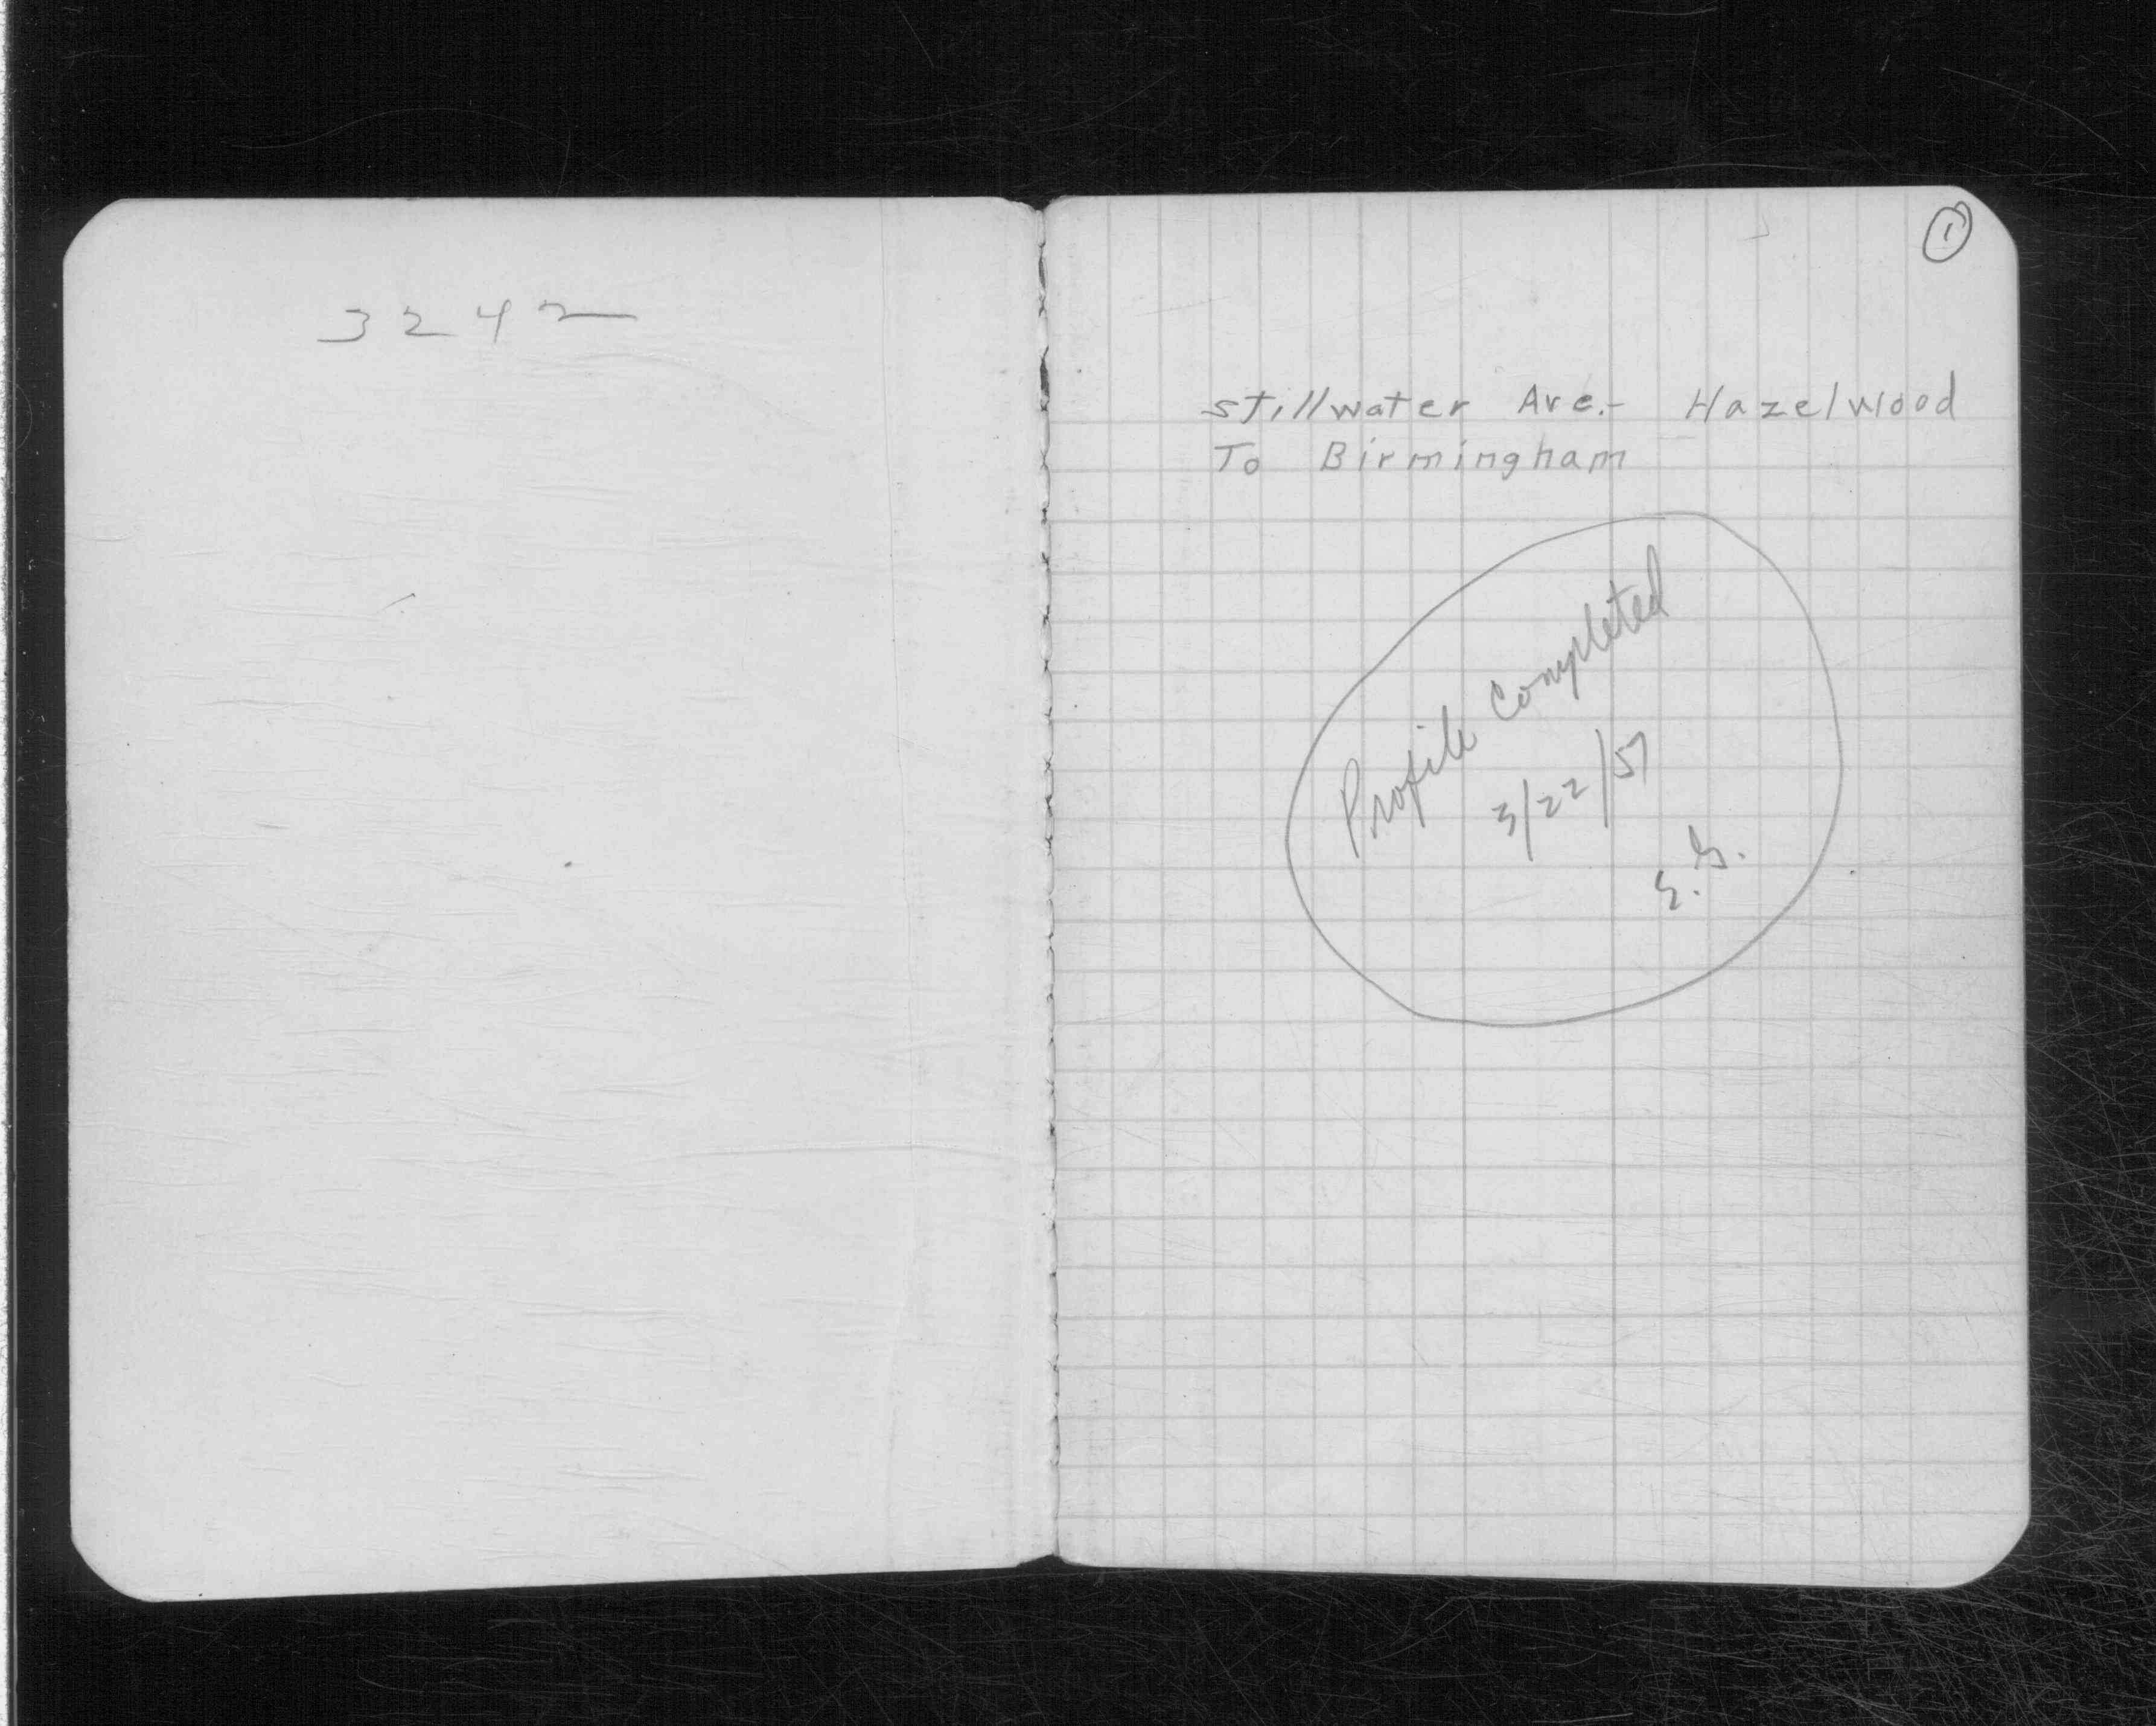 3242
1
Stillwater Ave.- Hazelwood
To Birmingham
Profile Completed
3/22/57
E.G.